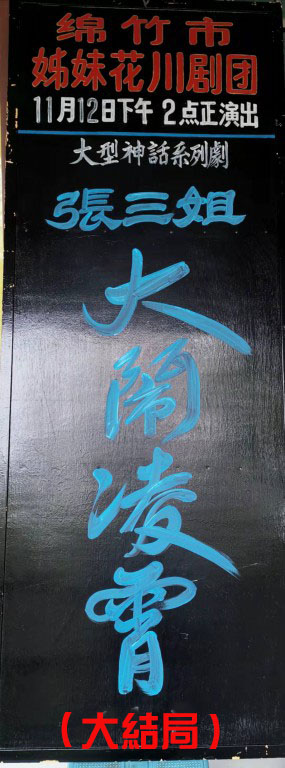 绵竹市
姊妹花川剧团
11月12日下午 2点正演出
大型神話系列劇
張三姐
大鬧凌霄
（大結局）